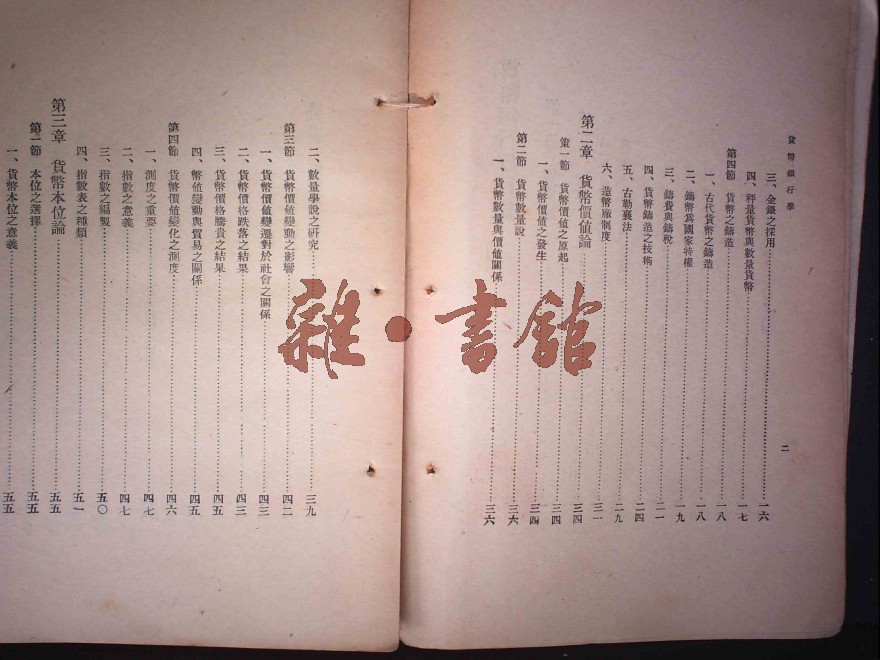 貨幣銀行學
二
三、金銀之採用……一六
四、秤量貨幣與數量貨幣……一七
第四節 貨幣之鑄造……一八
一、古代貨幣之鑄造……一八
二、鑄幣爲國家特權……一九
三、鑄費與鑄稅……二一
四、貨幣鑄造之技術……二四
五、古勒襄法……二九
六、造幣廠制度……三一
第二章 貨幣價値論……三四
第一節 貨幣價値之原起……三四
一、貨幣價値之發生……三四
第二節 貨幣數量說……三六
一、貨幣數量與價値關係……三六
二、數量學說之硏究……三九
第三節 貨幣價値變動之影響……四二
一、貨幣價値變遷對於社會之關係……四三
二、貨幣價格跌落之結果……四三
三、貨幣價格騰貴之結果……四五
四、幣値變動與貿易之關係……四五
第四節 貨幣價値變化之測度……四六
一、測度之重要……四七
二、指數之意義……四七
三、指數之編製……五〇
四、指數表之種類……五一
第三章 貨幣本位論……五五
第一節 本位之選擇……五五
一、貨幣本位之意義……五五
雜·書館